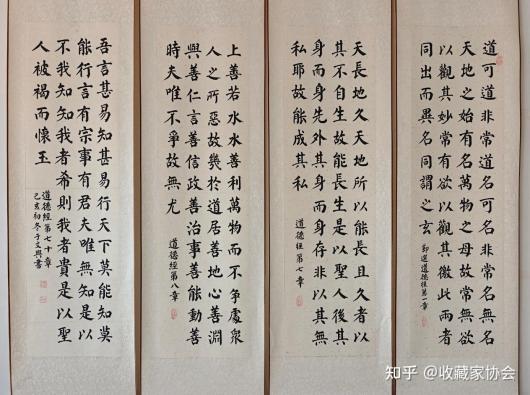 道可道非常道名可名非常名無名
天地之始有名萬物之母故常無欲
以觀其妙常有欲以觀其徼此兩者
同出而異名同謂之玄
節選道德經第一章
天長地久天地所以能長且久者以
其不自生故能長生是以聖人後其
身而身先外其身而身存非以其無
私耶故能成其私
道德經第七章
上善若水水善利萬物而不爭處衆
人之所惡故幾於道居善地心善淵
與善仁言善信政善治事善能動善
時夫唯不爭故無尤
道德經第八章
吾言甚易知甚易行天下莫能知莫
能行言有宗事有君夫唯無知是以
不我知知我者希則我者貴是以聖
人被褐而懷玉
道德經第七十章
己亥初冬于文興書
知乎 @收藏家协会